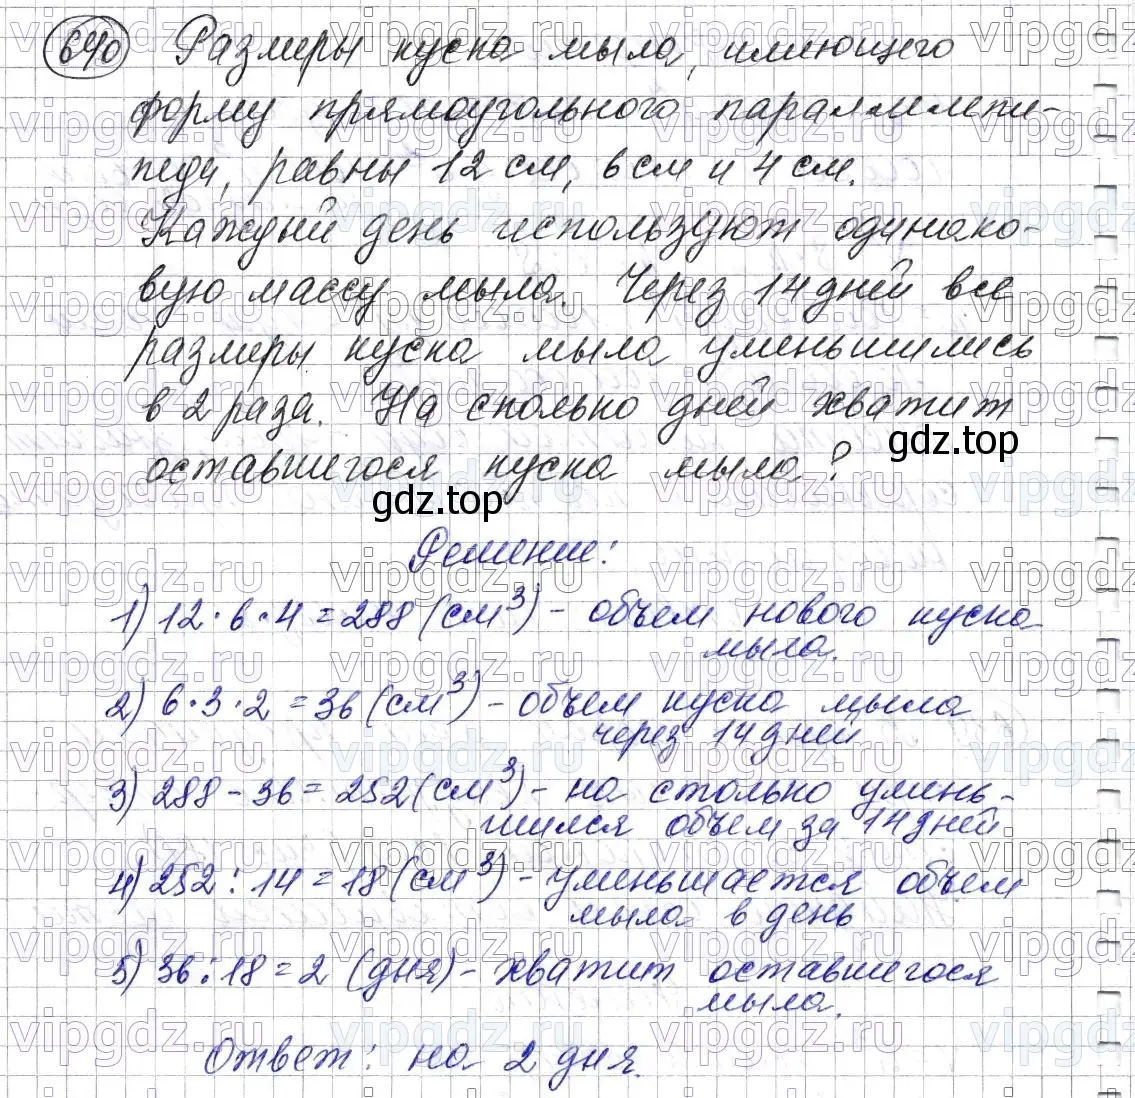 640 Размеры куска мыла, имеющего
форму прямоугольного параллелепи-
педа, равны 12 см, 6 см и 4 см.
Каждый день используют одинако-
вую массу мыла. Через 14 дней все
размеры куска мыла уменьшились
в 2 раза. На сколько дней хватит
gdz.top
оставшегося куска мыла?
gdz.top
Решение:
1) 12·6·4=288 (см³) - объем нового куска
мыла.
2) 6·3·2=36 (см³) - объем куска мыла
через 14 дней
3) 288-36=252 (см³) - на столько умень-
шился объем за 14 дней
4) 252:14=18 (см³) - уменьшается объем
мыла в день
5) 36:18=2 (дня) - хватит оставшегося
мыла.
Ответ: на 2 дня.
vipgdz.ru